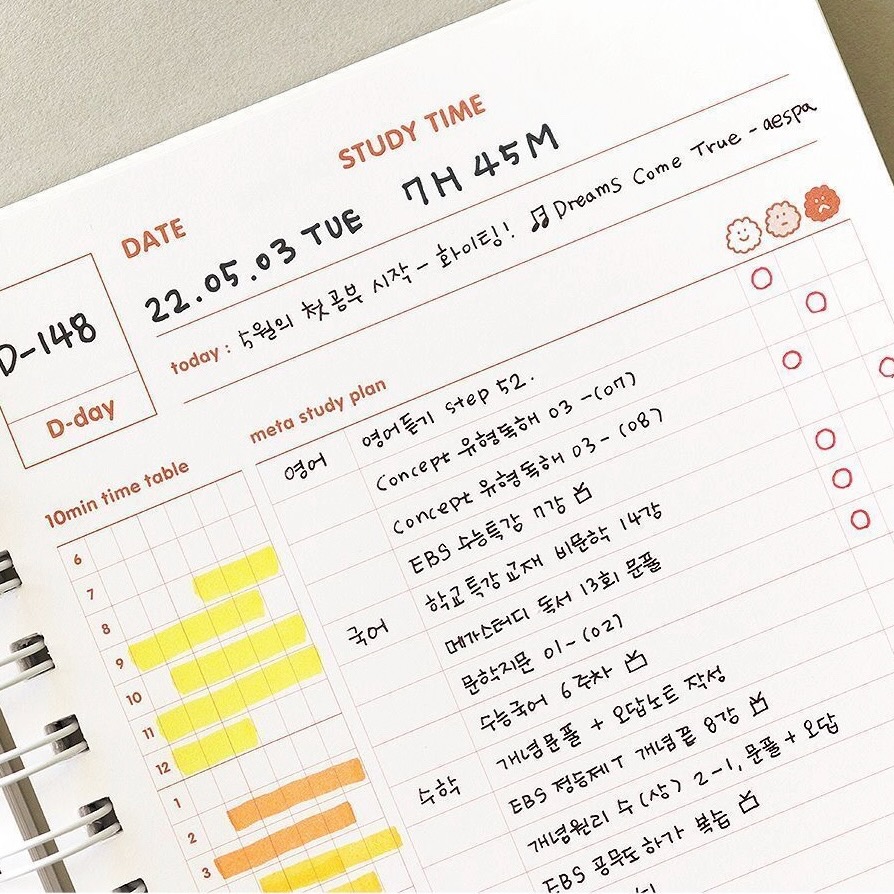 STUDY TIME
DATE
22.05.03 TUE 7H 45M
D-148
D-day
today : 5월의 첫 공부 시작 - 화이팅! ♬ Dreams Come True - aespa
10min time table
meta study plan
영어 영어듣기 step 52.
Concept 유형독해 03 -(07)
Concept 유형독해 03- (08)
EBS 수능특강 7강
국어 학교특강교재 비문학 14강
메가스터디 독서 13회 문풀
문학지문 01~(02)
수능국어 6주차
수학 개념문풀 + 오답노트 작성
EBS 정승제T 개념끝 8강
개념원리 수(상) 2-1, 문풀+오답
EBS 공무도하가 복습
6
7
8
9
10
11
12
1
2
3